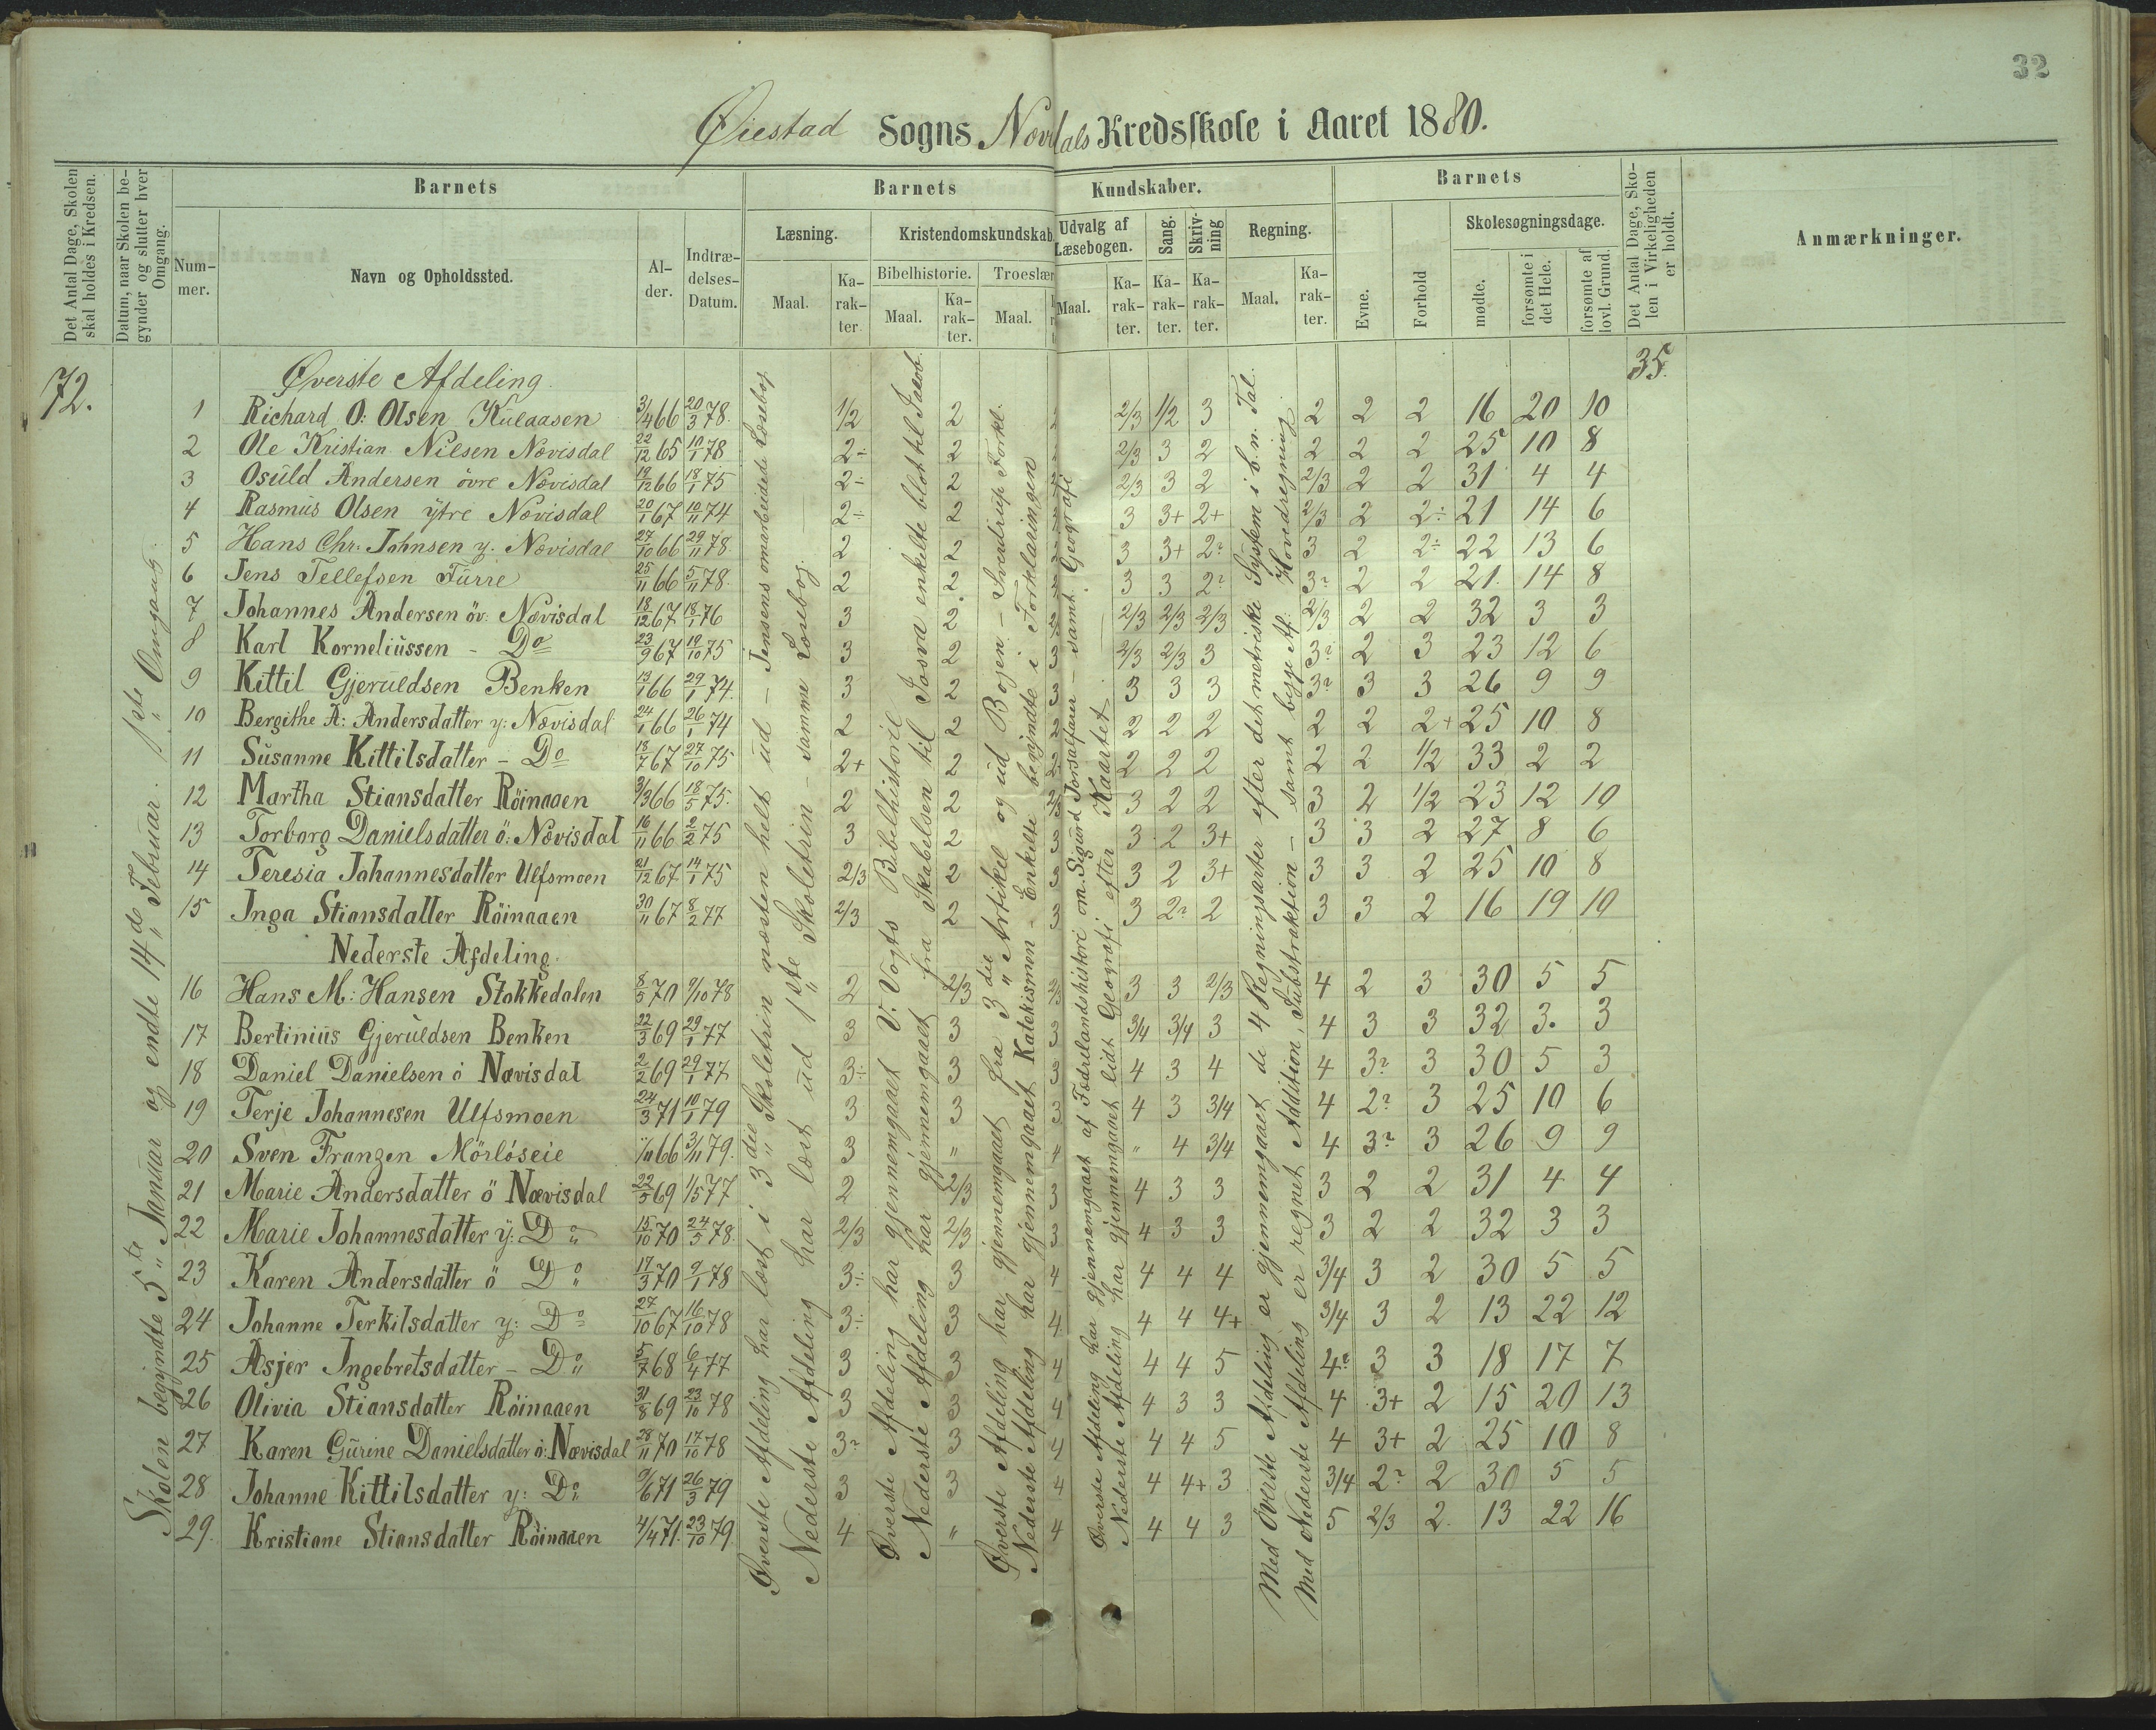 32
Øiestad Sogns Nævisdals Kredsskole i Aaret 1880.
Det Antal Dage, Skolen skal holdes i Kredsen.
Datum, naar Skolen begynder og slutter hver Omgang.
Barnets
Nummer.
Navn og Opholdssted.
Alder.
Indtrædelses-Datum.
Barnets Kundskaber.
Læsning.
Maal. Karakter.
Kristendomskundskab.
Bibelhistorie.
Maal. Karakter.
Troeslær
Maal.
Udvalg af Læsebogen.
Maal. Karakter.
Sang. Karakter.
Skrivning Karakter.
Regning.
Maal. Karakter.
Barnets
Evne.
Forhold
Skolesøgningsdage.
mødte.
forsømte i det Hele.
forsømte af lovl. Grund.
Det Antal Dage, Skolen i Virkeligheden er holdt.
Anmærkninger.
72.
35.
Skolen begyndte 5te Januar og endte 14de Februar. 1ste Omgang.
Øverste Afdeling har læst i 3die Skoletrin næsten helt ud – Jensens omarbeidede Læsebog.
Nederste Afdeling har læst ud 1ste Skoletrin – samme Læsebog.
Øverste Afdeling har gjennemgaaet V: Vogts Bibelhistorie
Nederste Afdeling har gjennemgaaet fra Skabelsen til Josva enkelte blot til Jacob.
Øverste Afdeling har gjennemgaaet fra 3die Artikel og ud Bogen – Sverdrups Forkl.
Nederste Afdeling har gjennemgaaet Katekismen – Enkelte begyndte i Forklaringen
Øverste Afdeling har gjennemgaaet af Fædrelandshistori om Sigurd Jorsalfarer – samt Geografi
Nederste Afdeling har gjennemgaaet lidt Geografi efter Kaartet
Med Øverste Afdeling er gjennemgaaet de 4 Regningsarter efter det metriske System i b.n. Tal.
Med Nederste Afdeling er regnet Addition, Substraktion – samt begge Af: Hovedregning.
Øverste Afdeling.
1 Richard O: Olsen Kulaasen 3/4 66 20/3 78. 1/2 2 2/3 1/2 3 2 2 2 16 20 10
2 Ole Kristian Nilsen Nævisdal 22/12 65 10/1 78 2÷ 2 2/3 3 2 2 2 2 25 10 8
3 Osuld Andersen övre Nævisdal 19/12 66 18/1 75 2÷ 2 2/3 3 2 2/3 2 2 31 4 4
4 Rasmus Olsen ytre Nævisdal 20/1 67 10/11 74 2÷ 2 3 3+ 2+ 2/3 2 2÷ 21 14 6
5 Hans Chr: Johnsen y. Nævisdal 27/10 66 29/11 78. 2 2 3 3+ 2? 3 2 2÷ 22 13 6
6 Jens Tellefsen Furre 25/11 66 5/11 78. 2 2 3 3 2? 3? 2 2 21. 14 8
7 Johannes Andersen öv: Nævisdal 18/12 67 18/1 76 3 2 2/3 2/3 2/3 2/3 2 2 32 3 3
8 Karl Korneliussen – Do 23/9 67 19/10 75 3 2 3 2/3 2/3 3 3? 2 3 23 12 6
9 Kittil Gjeruldsen Benken 13/1 66 29/1 74. 3 2 3 3 3 3 3? 3 3 26 9 9
10 Bergithe A: Andersdatter y: Nævisdal 24/1 66 26/1 74 2 2 2 2 2 2 2 2 2+ 25 10 8
11 Susanne Kittilsdatter – Do 18/7 67 27/10 75 2+ 2 2 2 2 2 2 2 1/2 33 2 2
12 Martha Stiansdatter Röinaaen 3/3 66 18/5 75. 2 2 2/3 3 2 2 3 2 1/2 23 12 10
13 Torborg Danielsdatter ö: Nævisdal 16/11 66 2/2 75 3 2 3 3 2 3+ 3 3 2 27 8 6
14 Teresia Johannesdatter Ulfsmoen 21/12 67 14/1 75 2/3 2 3 3 2 3+ 3 3 2 25 10 8
15 Inga Stiansdatter Röinaaen 30/11 67 8/2 77 2/3 2 3 3 2? 2 3 3 2 16 19 10
Nederste Afdeling.
16 Hans M: Hansen Stokkedalen 8/5 70 9/10 78 2 2/3 2/3 3 3 2/3 4 2 3 30 5 5
17 Bertinius Gjeruldsen Benken 22/3 69 29/1 77 3 3 3 3/4 3/4 3 4 3 3 32 3. 3
18 Daniel Danielsen ö Nævisdal 2/2 69 29/1 77 3÷ 3 3 4 3 4 4 3? 3 30 5 3
19 Terje Johannesen Ulfsmoen 24/3 71 10/1 79 3 3 3 4 3 3/4 4 2? 3 25 10 6
20 Sven Franzen Mörlöseie 1/11 66 3/11 79. 3 " 4 " 4 3/4 4 3? 3 26 9 9
21 Marie Andersdatter ö Nævisdal 22/5 69 1/5 77 2 2/3 3 4 3 3 3 2 2 31 4 4
22 Marie Johannesdatter y: Do 15/10 70 24/5 78. 2/3 2/3 3 4 3 3 3 2 2 32 3 3
23 Karen Andersdatter ö Do 17/3 70 9/1 78 3÷ 3 4 4 4 4 3/4 3 2 30 5 5
24 Johanne Terkilsdatter y: Do 27/10 67 16/10 78 3÷ 3 4 4 4 4+ 3/4 3 2 13 22 12
25 Asjer Ingebretsdatter – Do 5/7 68 6/4 77 3 3 4 4 4 5 4? 3 3 18 17 7
26 Olivia Stiansdatter Röinaaen 31/8 69 23/10 78 3 3 4 4 3 3 4 3+ 2 15 20 13
27 Karen Gurine Danielsdatter ö: Nævisdal 28/11 70 17/10 78 3? 3 4 4 4 5 4 3+ 2 25 10 8
28 Johanne Kittilsdatter y: Do 9/6 71 26/3 79 3 3 4 4 4+ 3 3/4 2? 2 30 5 5
29. Kristiane Stiansdatter Röinaaen 4/4 71. 23/10 79. 4 " 4 4 4 3 5 2/3 2. 13 22 16